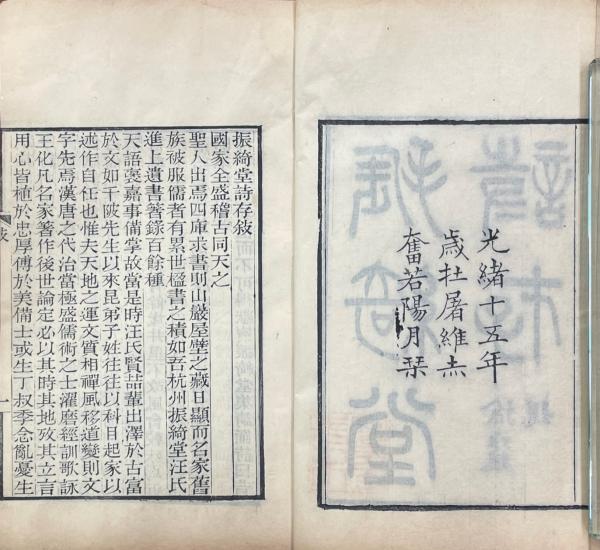 光緒十五年
歲在屠維赤
奮若陽月栞
振綺堂詩存敘
國家全盛稽古同天之
聖人出焉四庫求書則山巖屋壁之藏日顯而名家舊
族被服儒者有累世楹書之積如吾杭州振綺堂汪氏
進上遺書箸錄百餘種
天語褒嘉事備掌故當是時汪氏賢喆輩出澤於古富
於文如千陂先生以來昆弟子姓往往以科目起家以
述作自任也惟夫天地之運文質相禪風移道變則文
字先焉漢唐之代治當極盛儒術之士濯磨經訓歌詠
王化凡名家著作後世論定必以其時其地攷其立言
用心皆植於忠厚傅於美備士或生丁叔季念亂憂生
敘
一